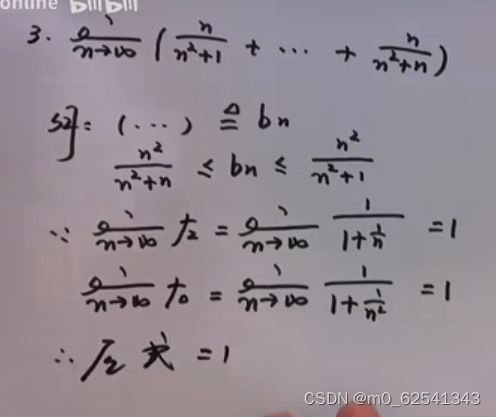 online bilibili
3. lim n→∞ ( n/(n²+1) + ⋯ + n/(n²+n) )
解: (⋯) ≜ bn
n²/(n²+n) ≤ bn ≤ n²/(n²+1)
∵ lim n→∞ 左 = lim n→∞ 1/(1+1/n) = 1
lim n→∞ 右 = lim n→∞ 1/(1+1/n²) = 1
∴ 原式 = 1
CSDN @m0_62541343